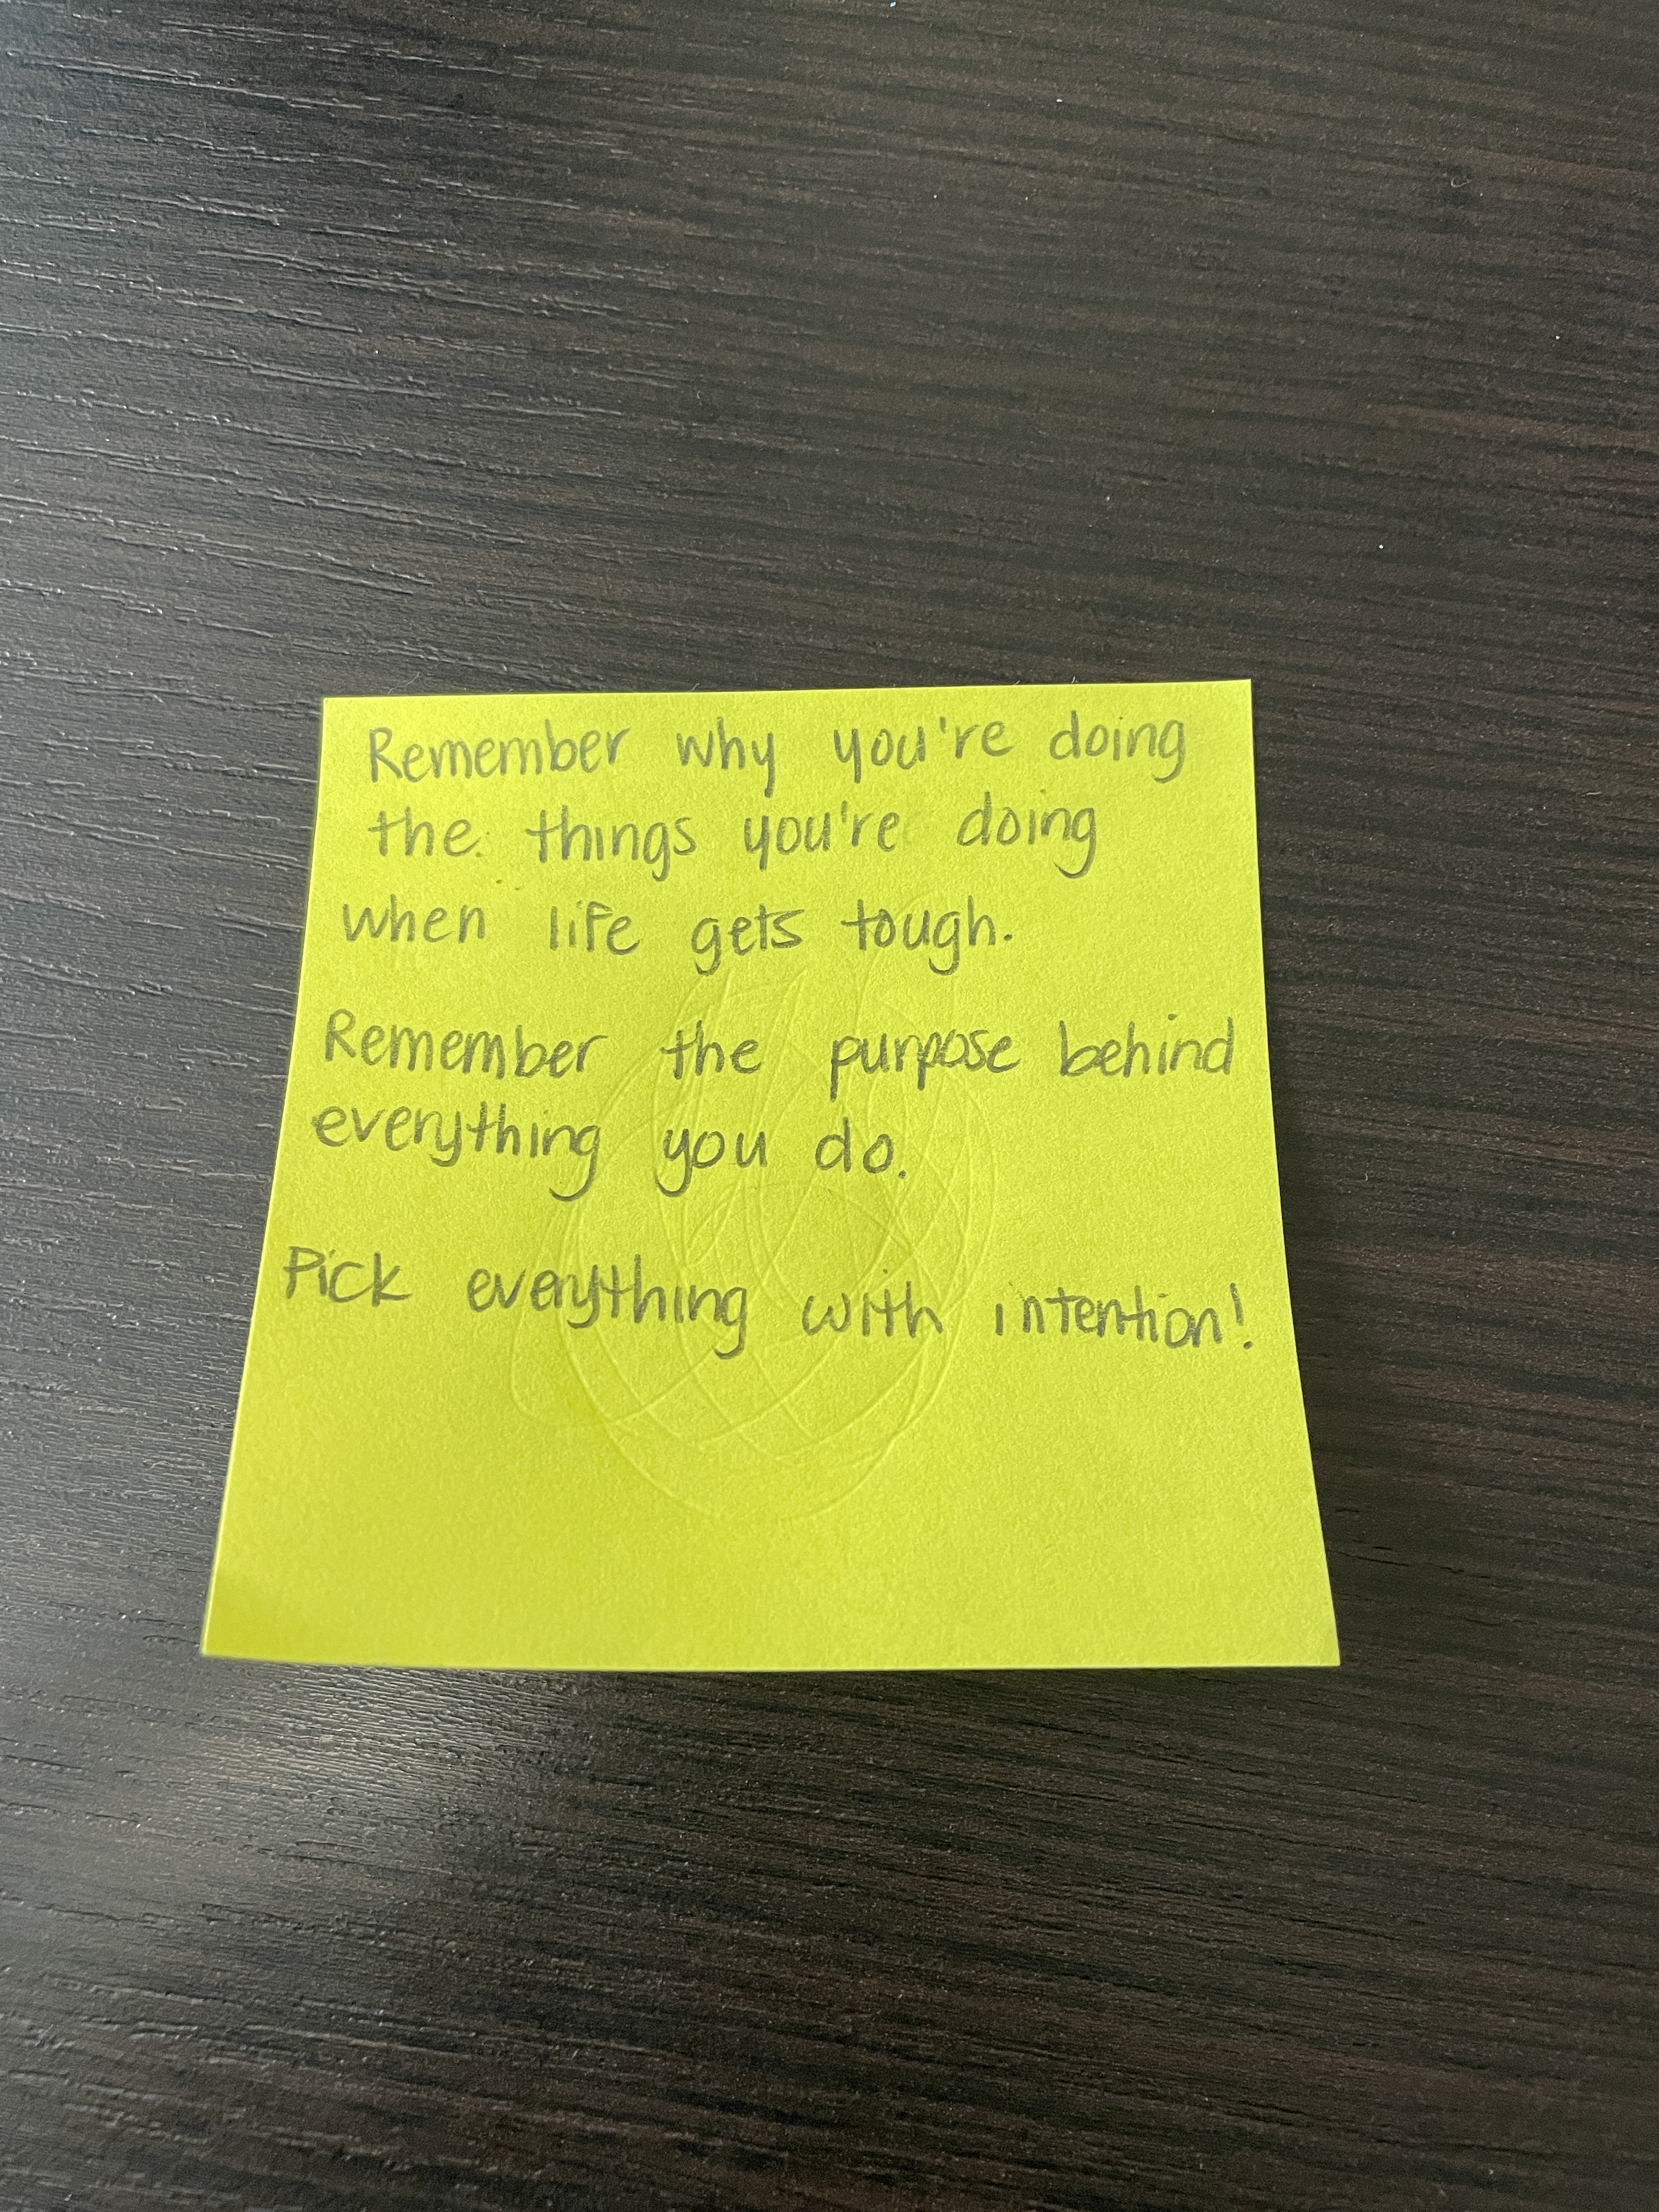 Remember why you're doing
the things you're doing
when life gets tough.
Remember the purpose behind
everything you do.
Pick everything with intention!